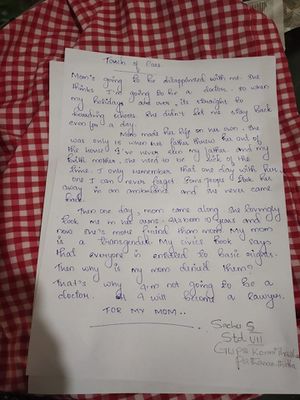 Touch of Care
Mom's going to be disappointed with me. She
thinks I'm going to be a doctor. So when
my holidays are over, its straight to
boarding school. She didn't let me stay back
even for a day.
Mom made her life on her own. She
was only 15 when her father threw her out of
the house. I've never seen my father and my
birth mother. She used to be sick all the
time. I only remember that one day with her,
one I can never forget. Some people took her
away in an ambulance and she never came
back.
Then one day, mom came along. She lovingly
took me in her arms.
now she's more friend than mom. My mom
is a Transgender. My civics book says
that everyone is entitled to basic rights.
Then why is my mom denied them?
That's why I'm not going to be a
doctor. I will become a lawyer.
FOR MY MOM..
Sacha S
Std VII
GUPS
Pathanamthitta